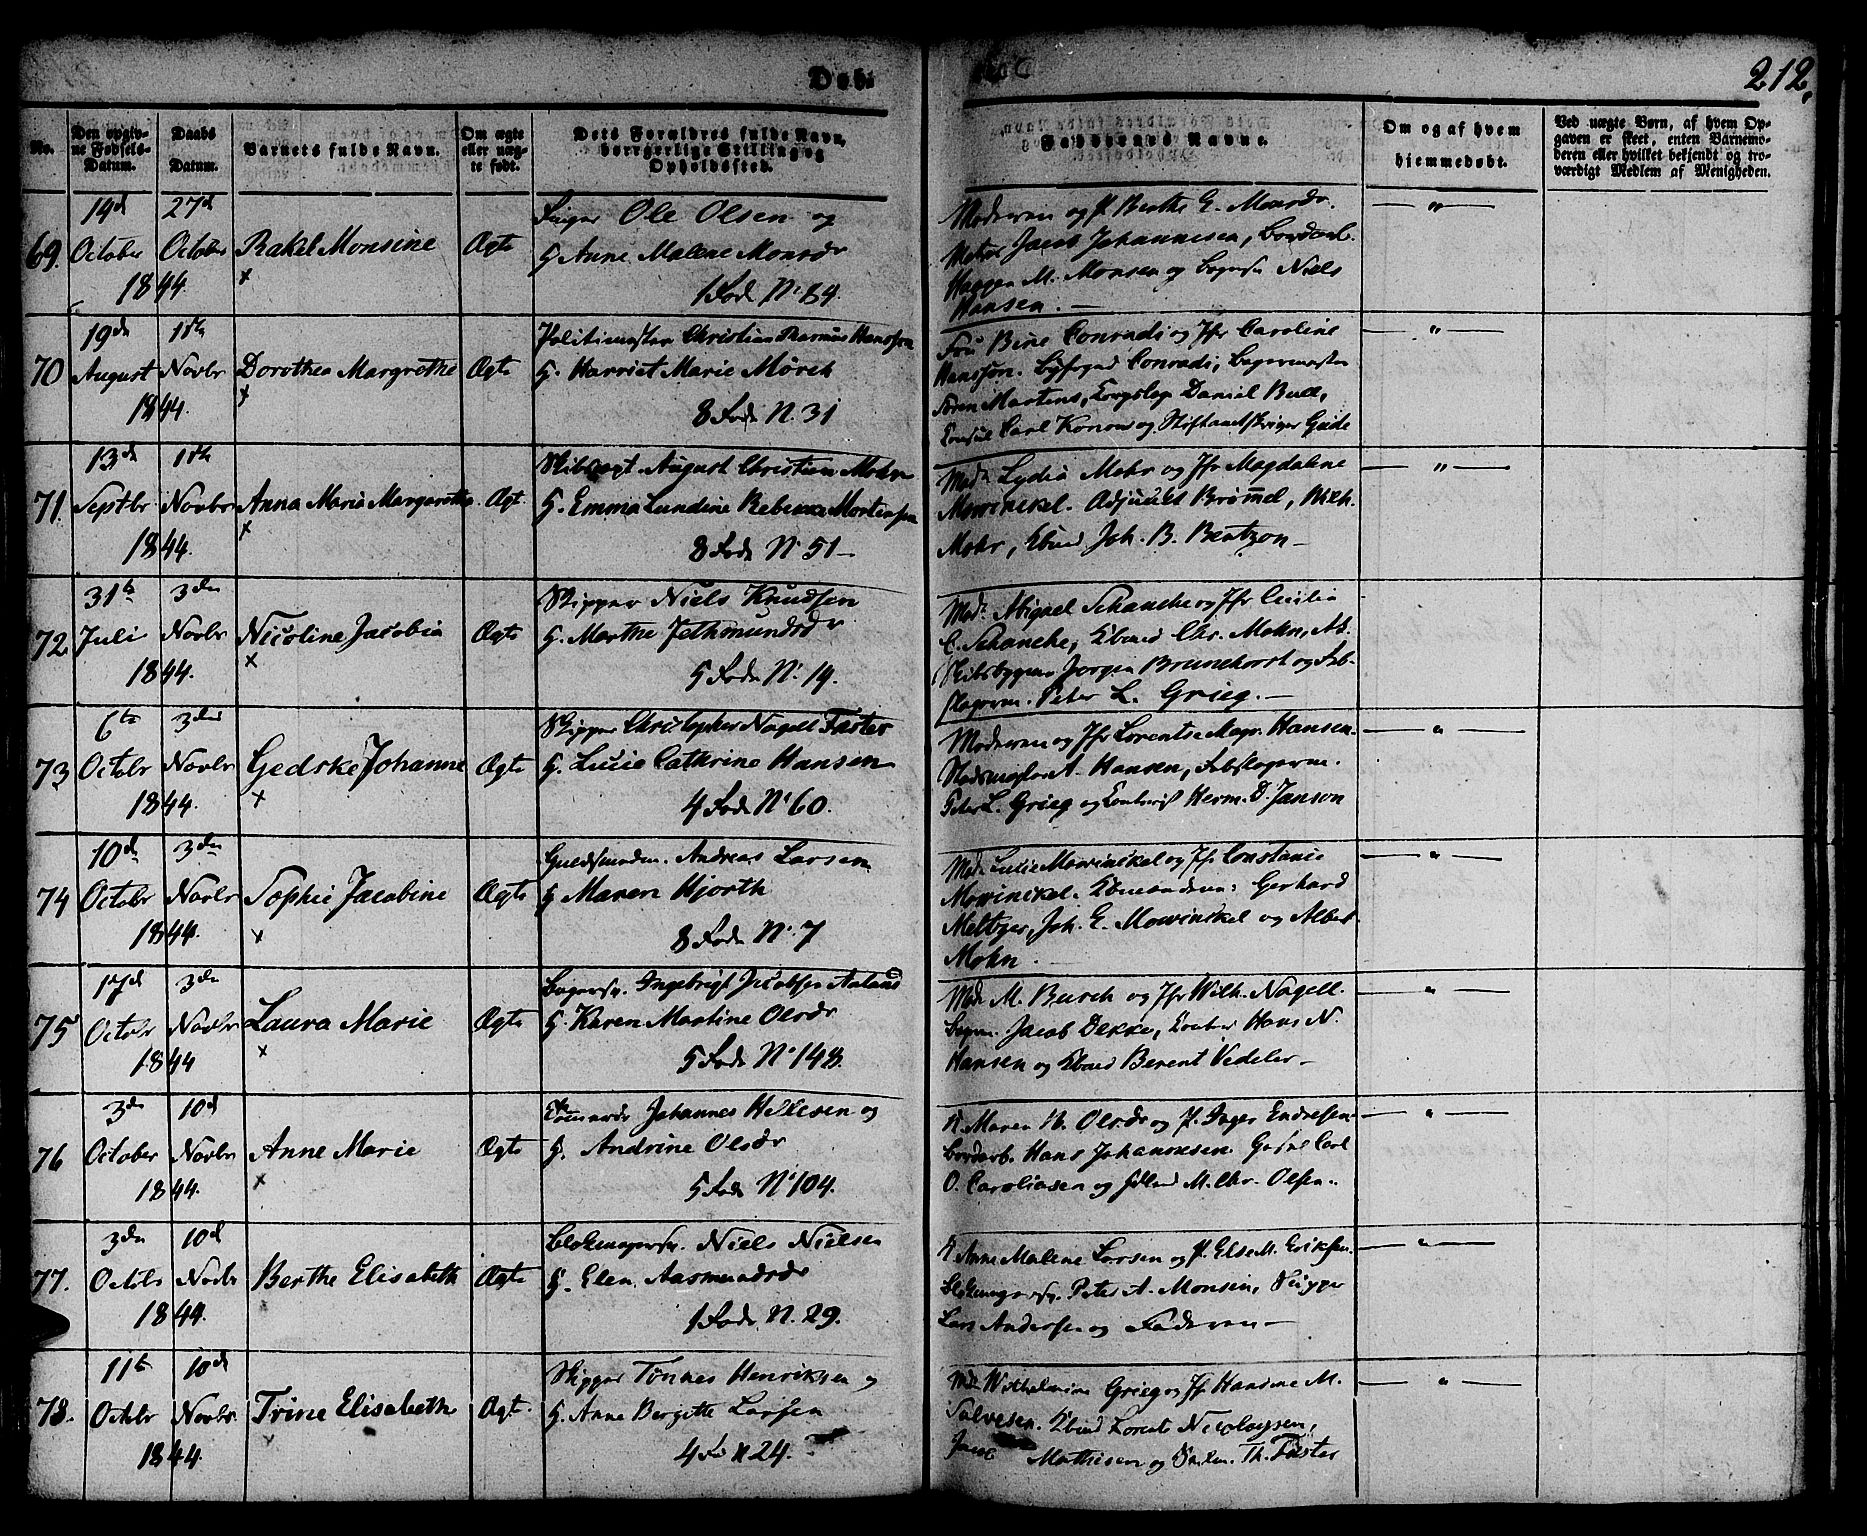 Døb.
212.
No.
Den opgiv-
ne Fødsels-
Datum.
Daabs
Datum.
Barnets fulde Navn.
Om ægte
eller uæg-
te født.
Dets Forældres fulde Navn,
borgerlige Stilling og
Opholdssted.
Faddernes Navne.
Om og af hvem
hjemmedøbt.
Ved uægte Børn, af hvem Op-
gaven er skeet, enten Barnemo-
deren eller hvilket bekjendt og tro-
værdigt Medlem af Menigheden.
69.
14d
October
1844.
27d
October
Rakel Monsine
x
Ægte
Ole Olsen og
H Anne Malene Monsdr
1 Rode No 84.
Moderen og P. Berthe G. Monsdr.
Jacob Johannesen, Bordarb.
Haggen M. Monsen og Bogers. Niels
Hansen. —
— " —
70
19de
August
1844.
1ste
Novbr
Dorothea Margrethe
x
Ægte
Politimester Christian Rasmus Hansson
H. Harriet Marie Mörch
8 Rode N. 31
Fru Bine Conradi og Jfr Caroline
Hansson. Byfoged Conradi, Bagermester
Sören Martens, Daniel Bull,
Consul Carl Konow og Stiftamtskriver Geide
— " —
71.
13de
Septbr
1844.
1ste
Novbr
Anna Maria Margarethe
x
Ægte
August Christian Mohr
H. Emma Lundine Rebekka Mortensen
8 Rode No 51 —
Mad. Lydia Mohr og Jfr Magdalene
Mowinckel. Adjunkt Brömmel, Wilh.
Mohr, Kbmd Joh. B. Bentzon —
— " —
72.
31te
Juli
1844.
3die
Novbr
Nicoline Jacobia
x
Ægte
Skipper Niels Knudsen
H. Marthe Jethmundsdr
5 Rode No. 19.
Mad. Abigael Schanche og Jfr Cecilia
C. Schanche, Kbmd Chr. Mohn, 
Skibsbygger Jørgen Brunchorst og Reb-
slagerm. Peter L. Grieg. —
73
6te
Octobr
1844.
3die
Novbr
Gedske Johanne
x
Ægte
Skipper Christopher Nagell Faster
H. Lucie Cathrine Hansen
4 Rode No 60.
Moderen og Jfr Lorentse Magr. Hansen.
Stadsmægler A. Hansen, Rebslagerm.
Peter L. Grieg og Contorist Herm. D. Janson
— " —
74
10de
Octobr
1844.
3die
Novbr
Sophie Jacobine
x
Ægte
Guldsmedm. Andreas Larsen
H Maren Hjorth
8 Rode No. 7
Mad. Lucie Mowinckel og Jfr Constance
Mowinckel. Kbmændene: Gerhard
Meltzer, Joh. E. Mowinckel og Albert
Mohn.
— " —
75
17d
Octobr
1844
3die
Novbr
Laura Marie
x
Ægte
Bogers. Ingebrigt Jacobsen Aaland
H. Karen Martine Olsdr
5 Rode No 148.
Mad. M. Busch og Jfr Wilh. Nagell.
Jacob Dekke, Hans N.
Hansen og Kbmd Berent Vedeler —
— " —
76
3de
October
1844.
10d
Novbr
Anne Marie
x
Ægte
Johannes Hellesen og
H. Andrine Olsdr
5 Rode No 104.
K. Maren N. Olsdr og P. Inger Endresen.
Bordarb. Hans Johannesen. Carl
O. Caroliusen og M. Chr. Olsen.
— " —
77.
3de
Octbr
1844.
10d
Novbr
Berthe Elisabeth
Ægte
Blokmagers. Niels Nielsen
H. Elen Aasmundsdr
1 Rode N. 29.
K. Anne Malene Larsen og P. Else M. Eriksen.
Blokmagers. Peter A. Monsen, Skipper
Lars Andersen og Faderen —
— " —
78.
11te
Octbr
1844.
10d
Novbr.
Trine Elisabeth
Ægte.
Skipper Tönnes Henriksen og
H. Anne Bergitte Larsen
4 Ro N 24.
Mad Wilhelmine Grieg og Jfr Hansine M.
Salvesen. Kbmd Lorents Nicolaysen,
Mathiesen og Th. Faster
— " —